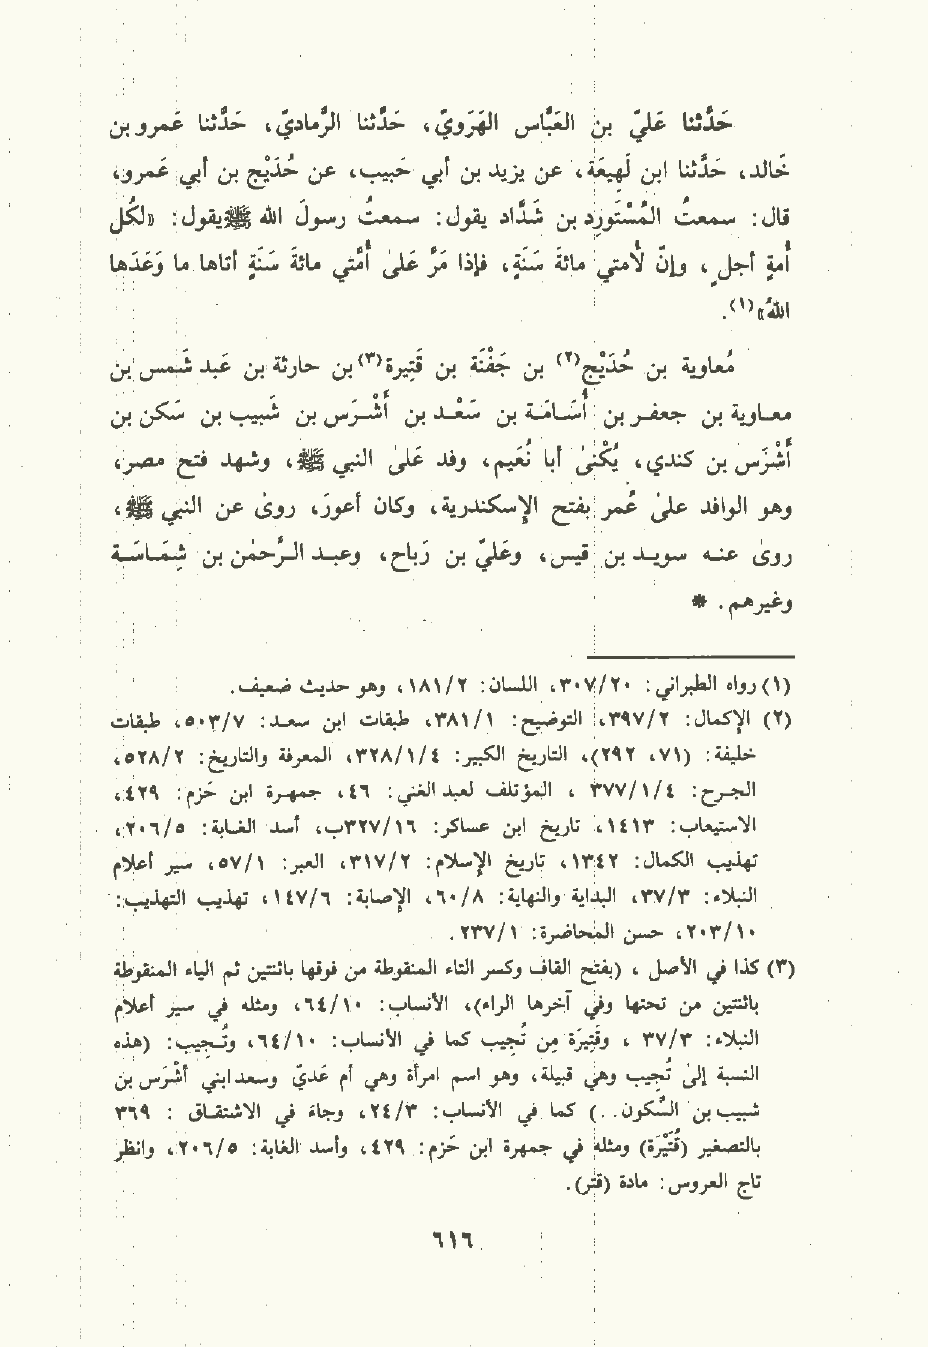 حَدَّثنا عَليّ بن العَبَّاس الهَرَويّ، حَدَّثنا الرَّماديّ، حَدَّثنا عَمرو بن
خَالد، حَدَّثنا ابن لَهِيعَة، عن يزيد بن أبي حَبيب، عن حُدَيْج بن أبي عَمرو،
قال: سمعتُ المُسْتَورِد بن شَدَّاد يقول: سمعتُ رسولَ الله ﷺ يقول: «لكُل
أُمةٍ أجلٍ، وإنّ لأُمتي مائةَ سَنَةٍ، فإذا مَرَّ عَلىٰ أُمَّتي مائةَ سَنَةٍ أتاها ما وَعَدَها
اللهُ»(١).
مُعاوية بن حُدَيْج(٢) بن جَفْنَة بن قَتِيرة(٣) بن حارثة بن عَبد شَمس بن
معاوية بن جعفر بن أُسَامَة بن سَعْد بن أَشْرَس بن شَبيب بن سَكن بن
أَشْرَس بن كندي، يُكْنىٰ أبا نُعَيم، وفد عَلىٰ النبي ﷺ، وشهد فتح مصر،
وهو الوافد علىٰ عُمر بفتح الإسكندرية، وكان أعورَ، روىٰ عن النبي ﷺ،
روىٰ عنه سويد بن قيس، وعَليّ بن رَباح، وعبد الرَّحمٰن بن شِمَاسَة
وغيرهم. *
(١) رواه الطبراني: ٣٠٧/٢٠، اللسان: ١٨١/٢، وهو حديث ضعيف.
(٢) الإكمال: ٣٩٧/٢، التوضيح: ٣٨١/١، طبقات ابن سعد: ٥٠٣/٧، طبقات
خليفة: (٧١، ٢٩٢)، التاريخ الكبير: ٣٢٨/١/٤، المعرفة والتاريخ: ٥٢٨/٢،
الجرح: ٣٧٧/١/٤ ، المؤتلف لعبد الغني: ٤٦، جمهرة ابن حَزم: ٤٢٩،
الاستيعاب: ١٤١٣، تاريخ ابن عساكر: ٣٢٧/١٦ب، أسد الغابة: ٢٠٦/٥،
تهذيب الكمال: ١٣٤٢، تاريخ الإسلام: ٣١٧/٢، العبر: ٥٧/١، سير أعلام
النبلاء: ٣٧/٣، البداية والنهاية: ٦٠/٨، الإصابة: ١٤٧/٦، تهذيب التهذيب:
٢٠٣/١٠، حسن المحاضرة: ٢٣٧/١.
(٣) كذا في الأصل ، (بفتح القاف وكسر التاء المنقوطة من فوقها باثنتين ثم الياء المنقوطة
باثنتين من تحتها وفي آخرها الراء)، الأنساب: ٦٤/١٠، ومثله في سير أعلام
النبلاء: ٣٧/٣ ، وقَتِيرَة مِن تُجِيب كما في الأنساب: ٦٤/١٠، وتُجِيب: (هذه
النسبة إلىٰ تُجِيب وهي قبيلة، وهو اسم امرأة وهي أم عَديّ وسعد ابني أشْرَس بن
شبيب بن السُّكون. .) كما في الأنساب: ٢٤/٣، وجاءَ في الاشتقاق : ٣٦٩
بالتصغير (قُتَيْرَة) ومثله في جمهرة ابن حَزم: ٤٢٩، وأسد الغابة: ٢٠٦/٥، وانظر
تاج العروس: مادة (قتر).
٦١٦